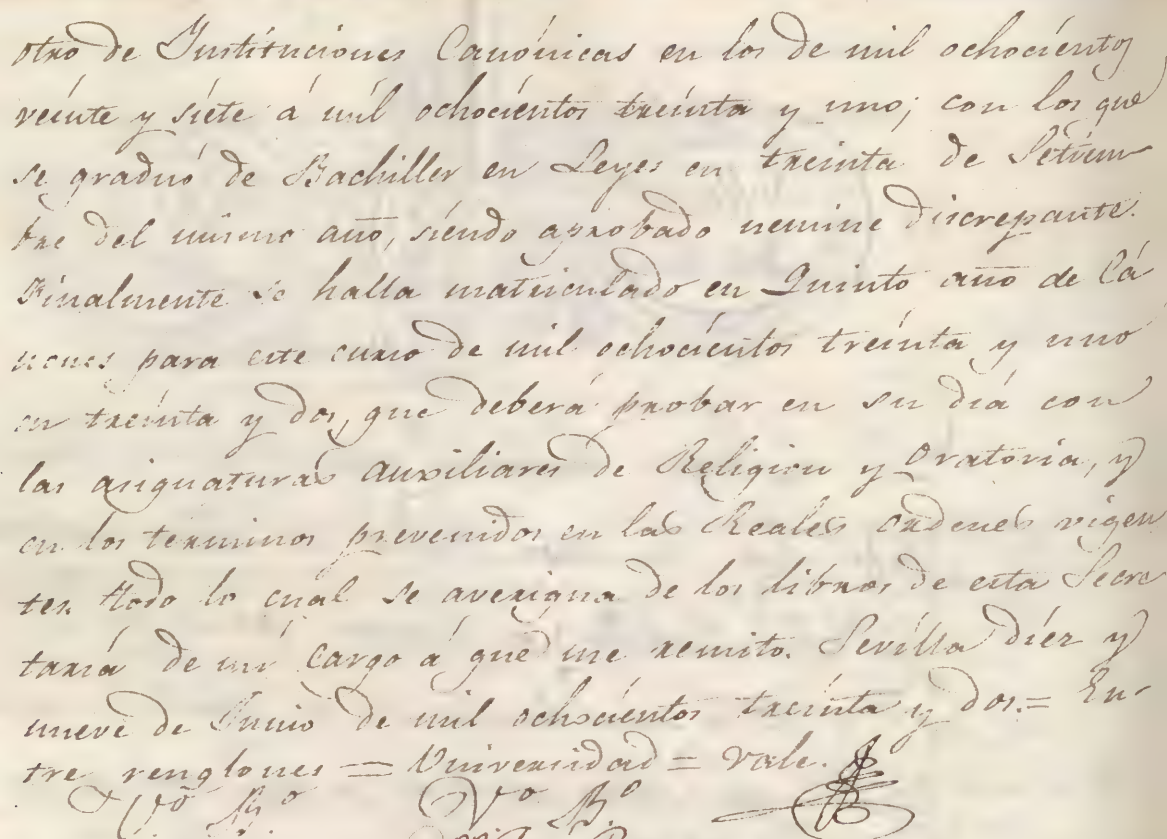 otro de Instituciones Canónicas en los de mil ochocientos
veinte y siete á mil ochocientos treinta y uno; con los que
se graduó de Bachiller en Leyes en treinta de Setiem
bre del mismo año, siendo aprobado nemine discrepante.
Finalmente se halla matriculado en Quinto año de Cá
nones para este curso de mil ochocientos treinta y uno
en treinta y dos, que deberá probar en su dia con
las asignaturas auxiliares de Religion y Oratoria, y
en los terminos prevenidos en las Reales ordenes vigen
tes. Todo lo cual se averigua de los libros de esta Secre
taría de mi cargo á que me remito. Sevilla diez y
nueve de Junio de mil ochocientos treinta y dos.= En-
tre renglones = Universidad = Vale.
Vº Bº Vº Bº